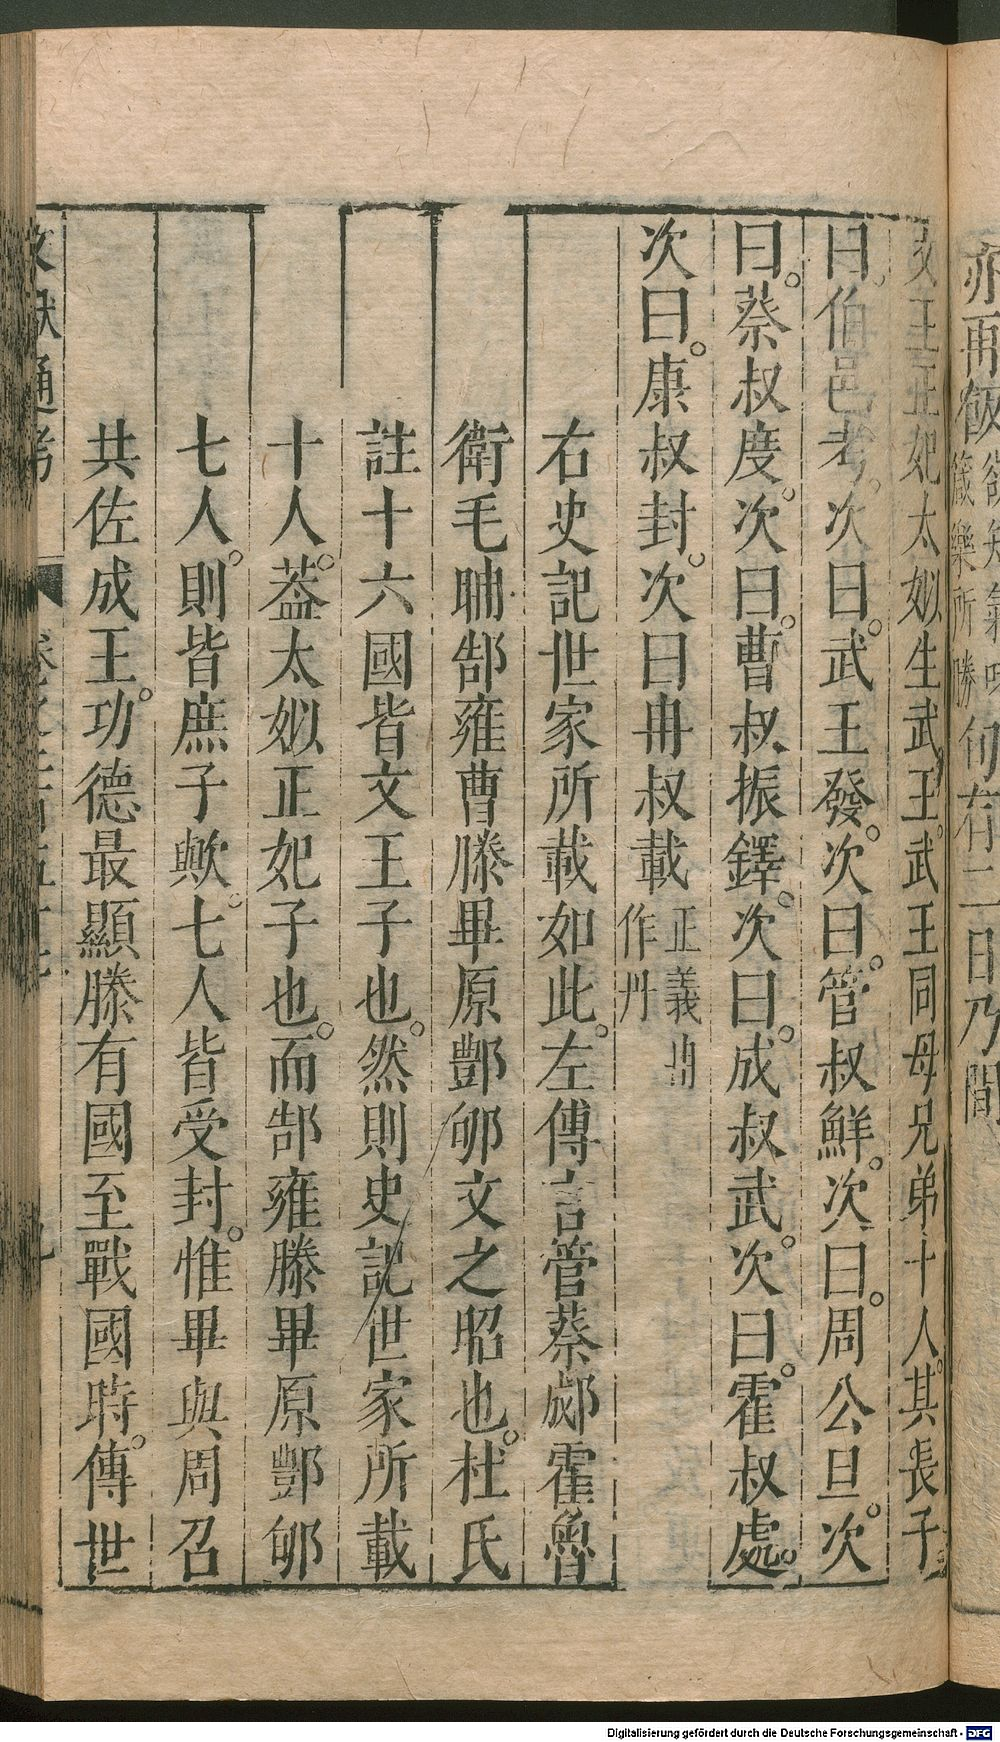 亦再飯
箴樂所勝
旬有二日乃間
文王正妃太姒生武王武王同母兄弟十人其長子
曰伯邑考次曰武王發次曰管叔鮮次曰周公旦次
曰蔡叔度次曰曹叔振鐸次曰成叔武次曰霍叔處
次曰康叔封次曰冉叔載
正義冉
作丹
右史記世家所載如此左傳言管蔡郕霍魯
衛毛聃郜雍曹滕畢原酆郇文之昭也杜氏
註十六國皆文王子也然則史記世家所載
十人葢太姒正妃子也而郜雍滕畢原酆郇
七人則皆庶子歟七人皆受封惟畢與周召
共佐成王功德最顯滕有國至戰國時傳世
文獻通考
Digitalisierung gefördert durch die Deutsche Forschungsgemeinschaft - DFG